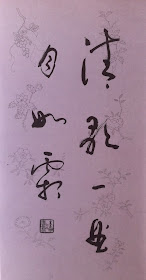 清歌一曲
月如霜